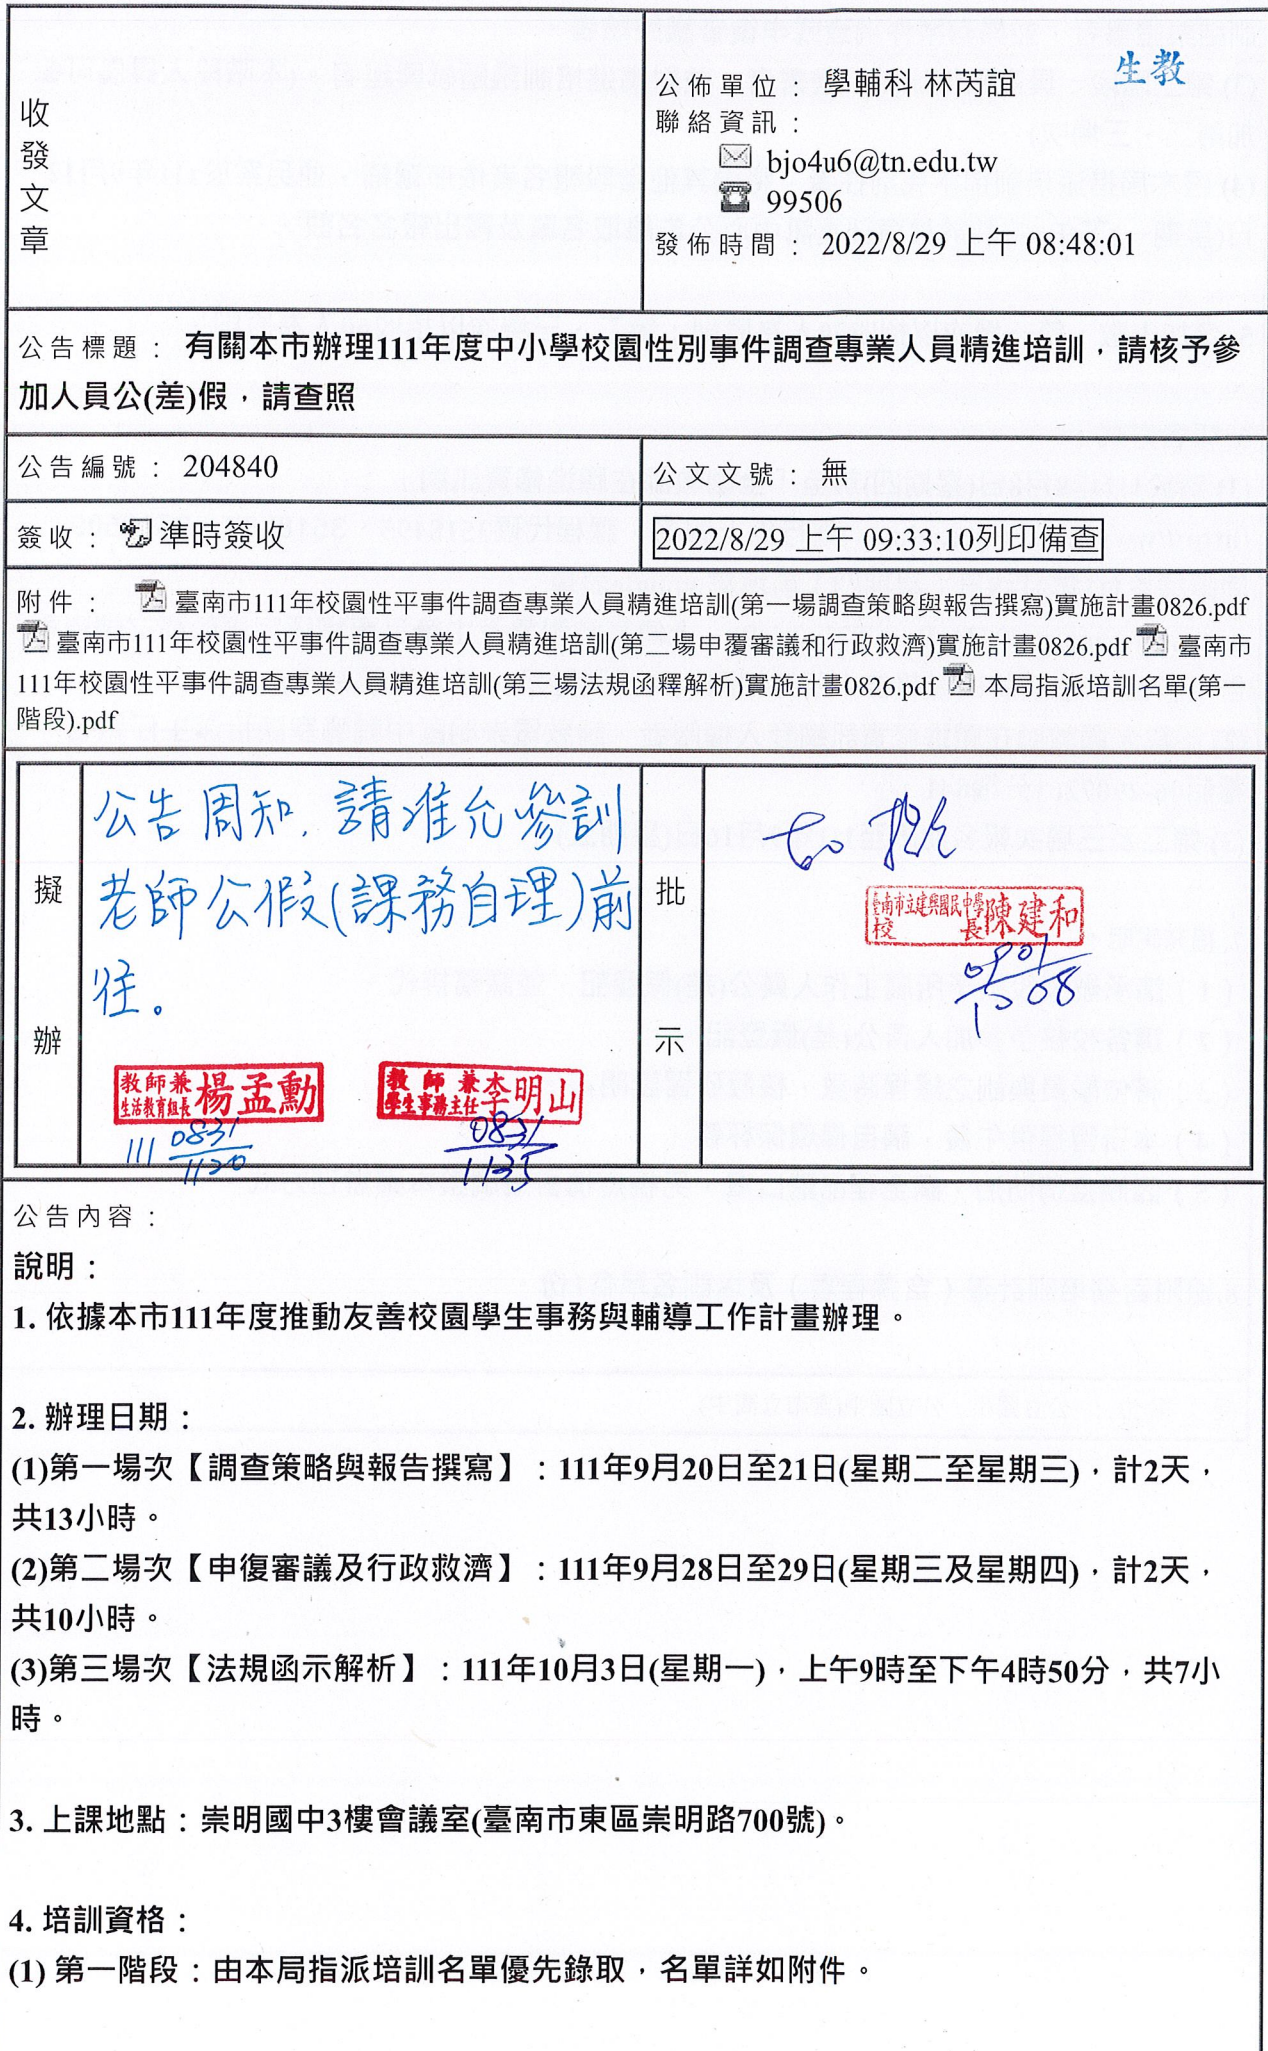 收發文章
生教
公佈單位：學輔科 林芮誼
聯絡資訊：
bjo4u6@tn.edu.tw
99506
發佈時間：2022/8/29 上午 08:48:01
公告標題：有關本市辦理111年度中小學校園性別事件調查專業人員精進培訓，請核予參
加人員公(差)假，請查照
公告編號：204840
公文文號：無
簽收：準時簽收
2022/8/29 上午 09:33:10列印備查
附件：臺南市111年校園性平事件調查專業人員精進培訓(第一場調查策略與報告撰寫)實施計畫0826.pdf
臺南市111年校園性平事件調查專業人員精進培訓(第二場申覆審議和行政救濟)實施計畫0826.pdf 臺南市
111年校園性平事件調查專業人員精進培訓(第三場法規函釋解析)實施計畫0826.pdf 本局指派培訓名單(第一
階段).pdf
擬辦
公告周知，請准允參訓
老師公假(課務自理)前
往。
教師兼生活教育組長楊孟勳
111 0831
1120
教師兼學生事務主任李明山
0831
1135
批示
如擬
臺南市立建興國民中學校長陳建和
0901
1508
公告內容：
說明：
1. 依據本市111年度推動友善校園學生事務與輔導工作計畫辦理。
2. 辦理日期：
(1)第一場次【調查策略與報告撰寫】：111年9月20日至21日(星期二至星期三)，計2天，
共13小時。
(2)第二場次【申復審議及行政救濟】：111年9月28日至29日(星期三及星期四)，計2天，
共10小時。
(3)第三場次【法規函示解析】：111年10月3日(星期一)，上午9時至下午4時50分，共7小
時。
3. 上課地點：崇明國中3樓會議室(臺南市東區崇明路700號)。
4. 培訓資格：
(1) 第一階段：由本局指派培訓名單優先錄取，名單詳如附件。